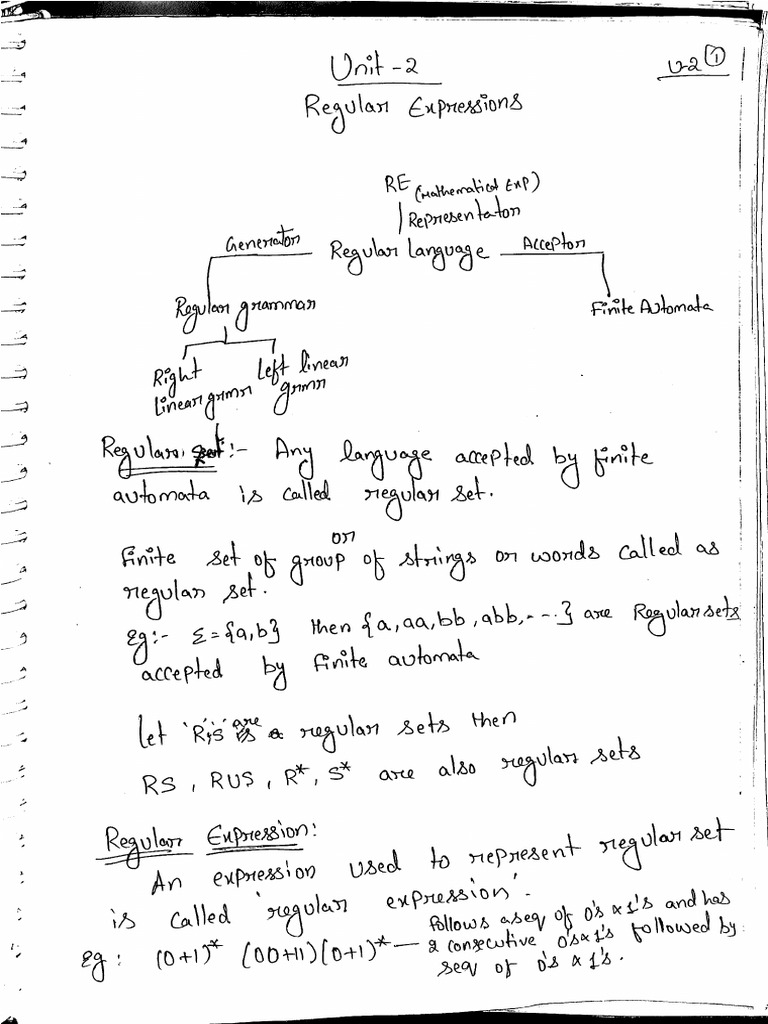 Unit-2
U-2 1
Regular Expressions
RE (Mathematical Exp)
Representator
Generator Regular language Acceptor
Regular grammar Finite Automata
Right Left linear
linear grmr grmr
Regular set:- Any language accepted by finite
automata is called regular set.
or
Finite set of group of strings or words called as
regular set.
Eg:- Σ={a,b} then {a,aa,bb,abb,---} are Regular sets
accepted by finite automata
Let 'R,S' are regular sets then
RS, RUS, R*, S* are also regular sets
Regular Expression:
An expression used to represent regular set
is called 'regular expression'.
Eg: (0+1)* (00+11)(0+1)* — follows a seq of 0's & 1's and has
2 consecutive 0's & 1's followed by
seq of 0's & 1's.